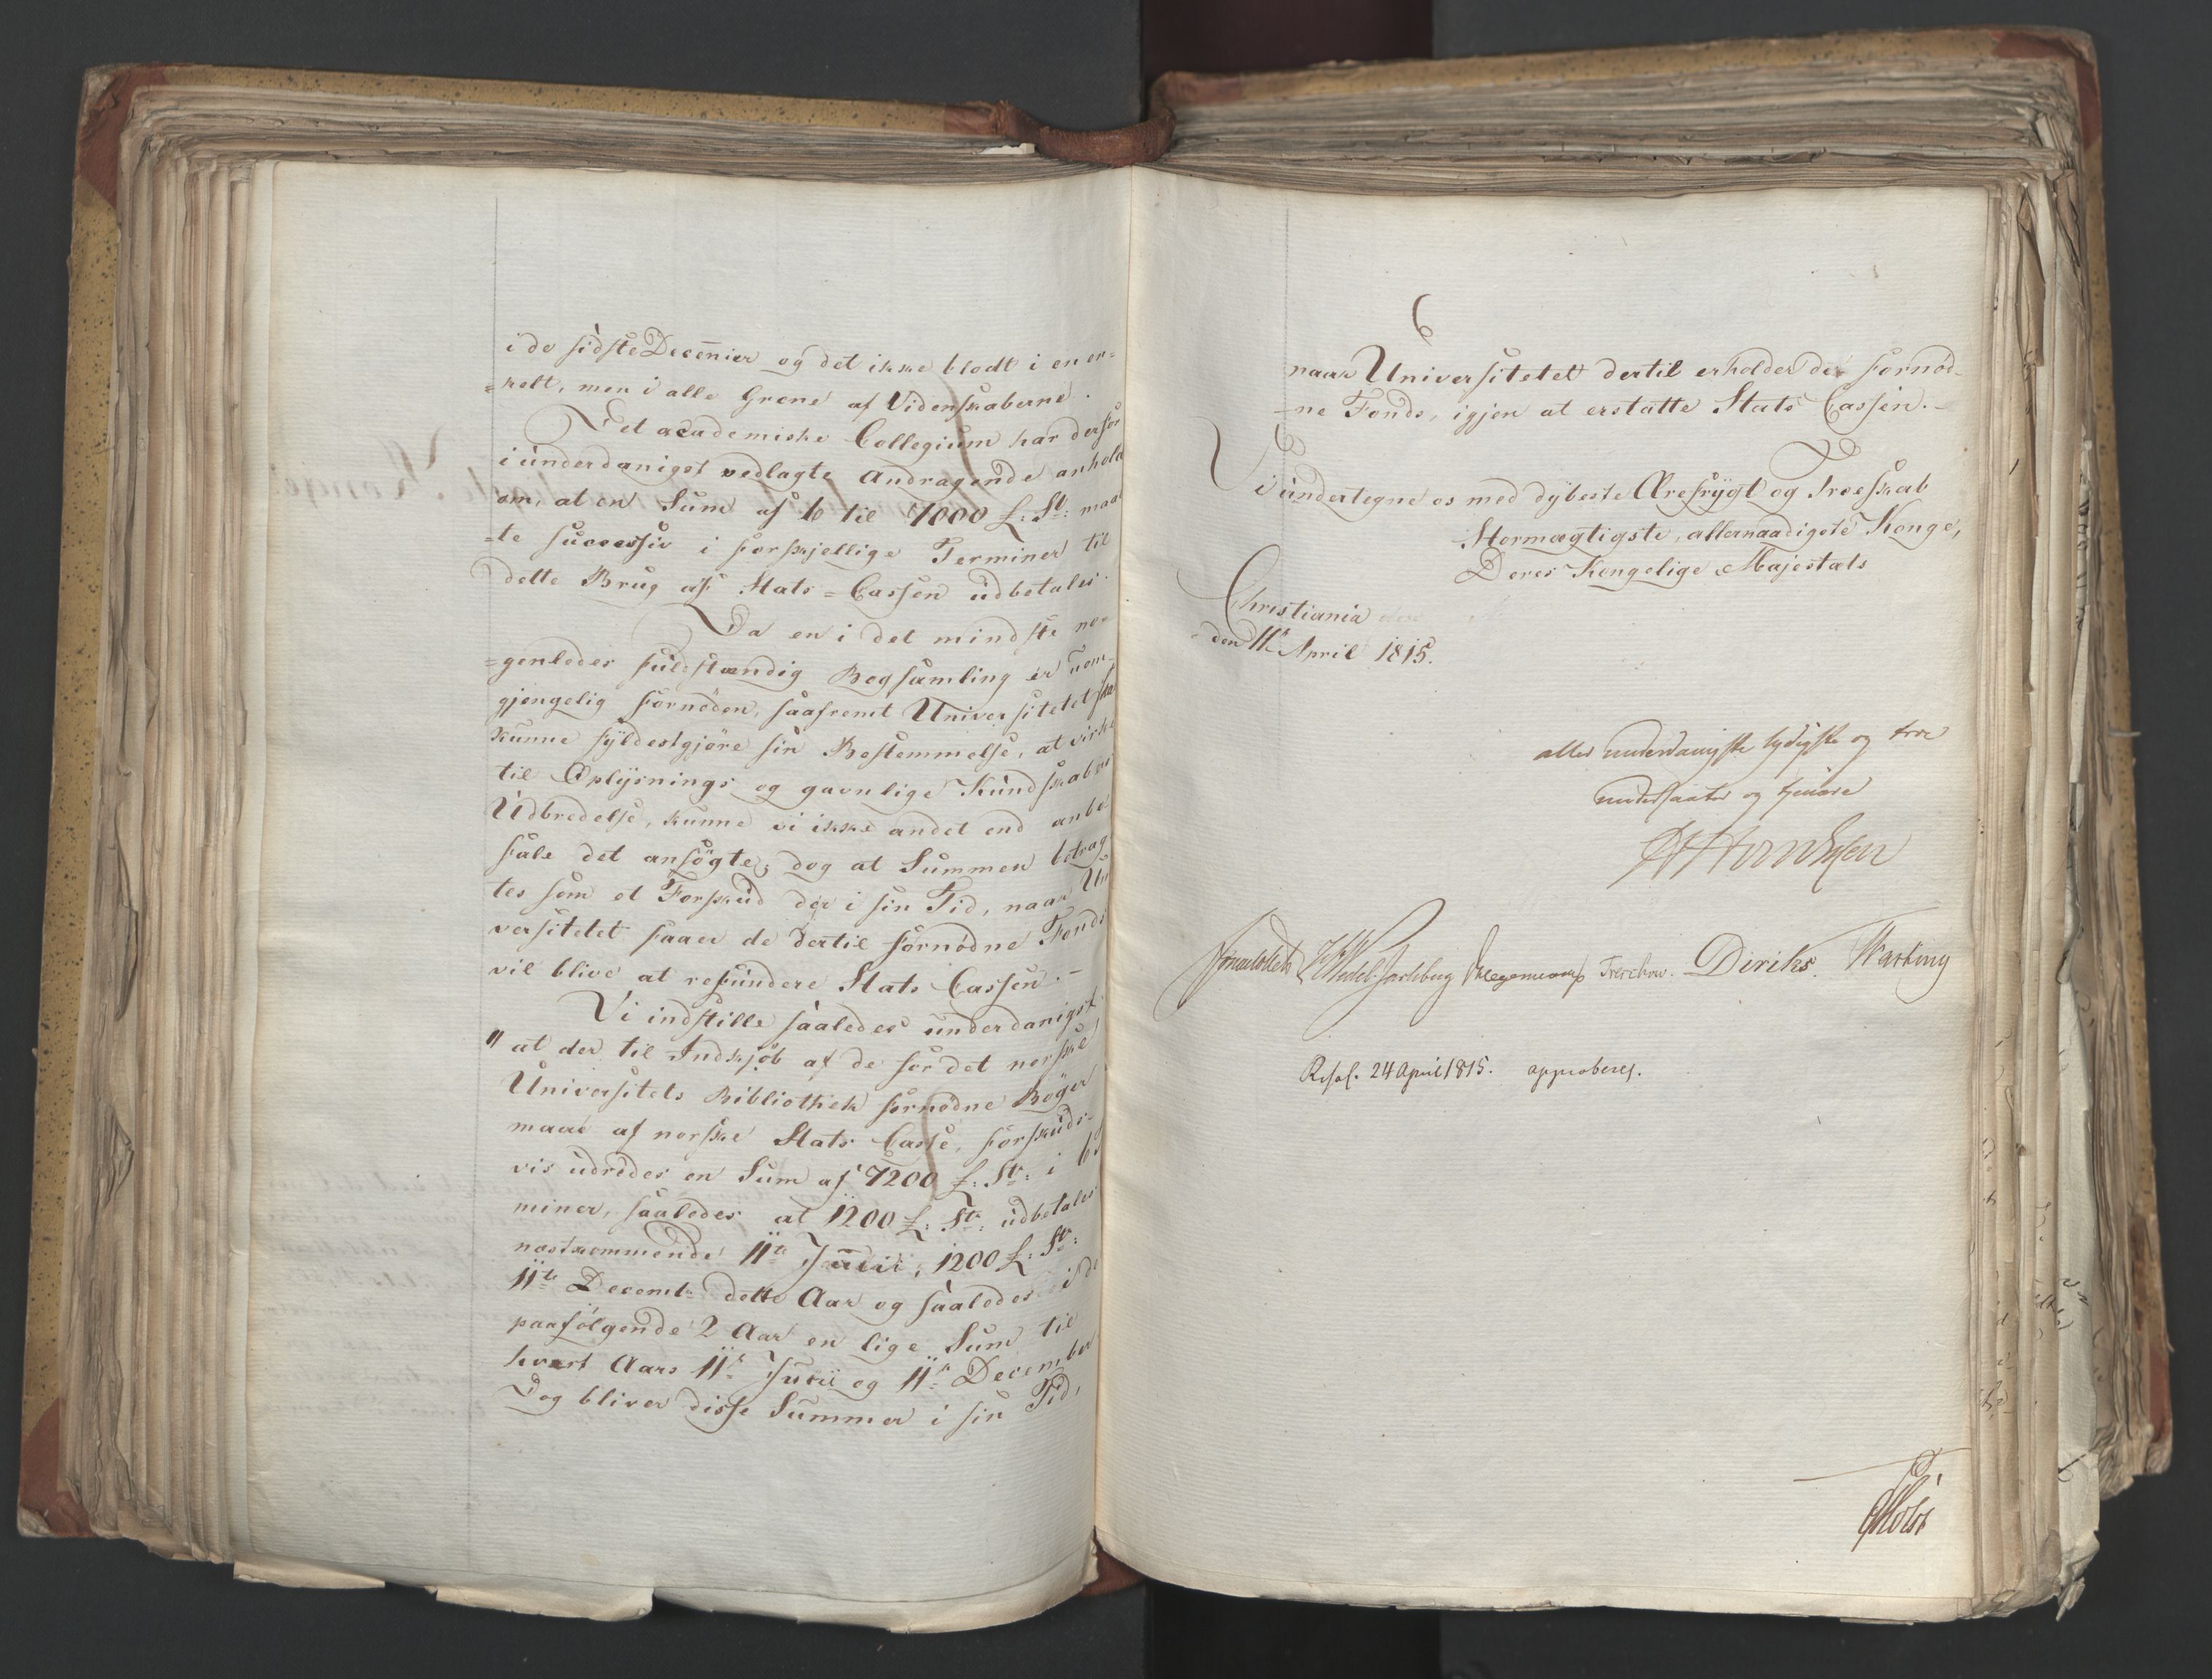 i de sidste Decenier og det ikke blodt i en en=
=kelt, men i alle Grene af Videnskaberne.
Det academiske Collegium har derfor
i underdanigst vedlagte Andragende anhold
om, at en Sum af 6 til 7000 £: St: maat
=te successiv i forskjellige Terminer til
dette Brug af Stats=Cassen udbetales.
Da en i det mindste no=
=genledes fuldstændig Bogsamling er uom=
gjengelig fornöden, saafremt Universitetet skal
kunne fyldestgjöre sin Bestemmelse, at virke
til Oplysnings og gavnlige Kundskabers
Udbredelse, kunne vi ikke andet end anbe
fale det ansögte, dog at Summen betrag
tes som et Forskud der i sin Tid, naar Uni
versitetet faaer de dertil fornödne Fonds
vil blive at refundere Stats Cassen.-
Vi indstille saaledes underdanigst
" at der til Indkjöb af de for det norske
Universitets Bibliothek fornødne Böger
maae af norske Stats Casse, forskuds=
vis udredes en Sum af 7200 £: St: i 6
miner, saaledes at 1200 £: St: udbetales
næstkommende 11te Junii, 1200 £: St:
11te Decemb: dette Aar og saaledes i de
paafölgende 2 Aar en lige Sum til
hvert Aars 11te Junii og 11te December
Dog bliver disse Summer i sin Tid,
naar Universitetet dertil erholder de fornöd-
-ne Fonds, igjen at erstatte Stats Cassen.-
Vi undertegne os med dybeste Ærefrygt og Troeskab
Stormægtigste, allernaadigste Konge,
Deres Kongelige Majestæts
Christiania
den 11te April 1815.
aller underdanigste lydigste og troe
undersaatter og tjenere
Sommerfeldt Wedel-Jarlsberg Hegermann Treschow. Diriks. Fasting
Resol. 24 April 1815. approberes.
Holst